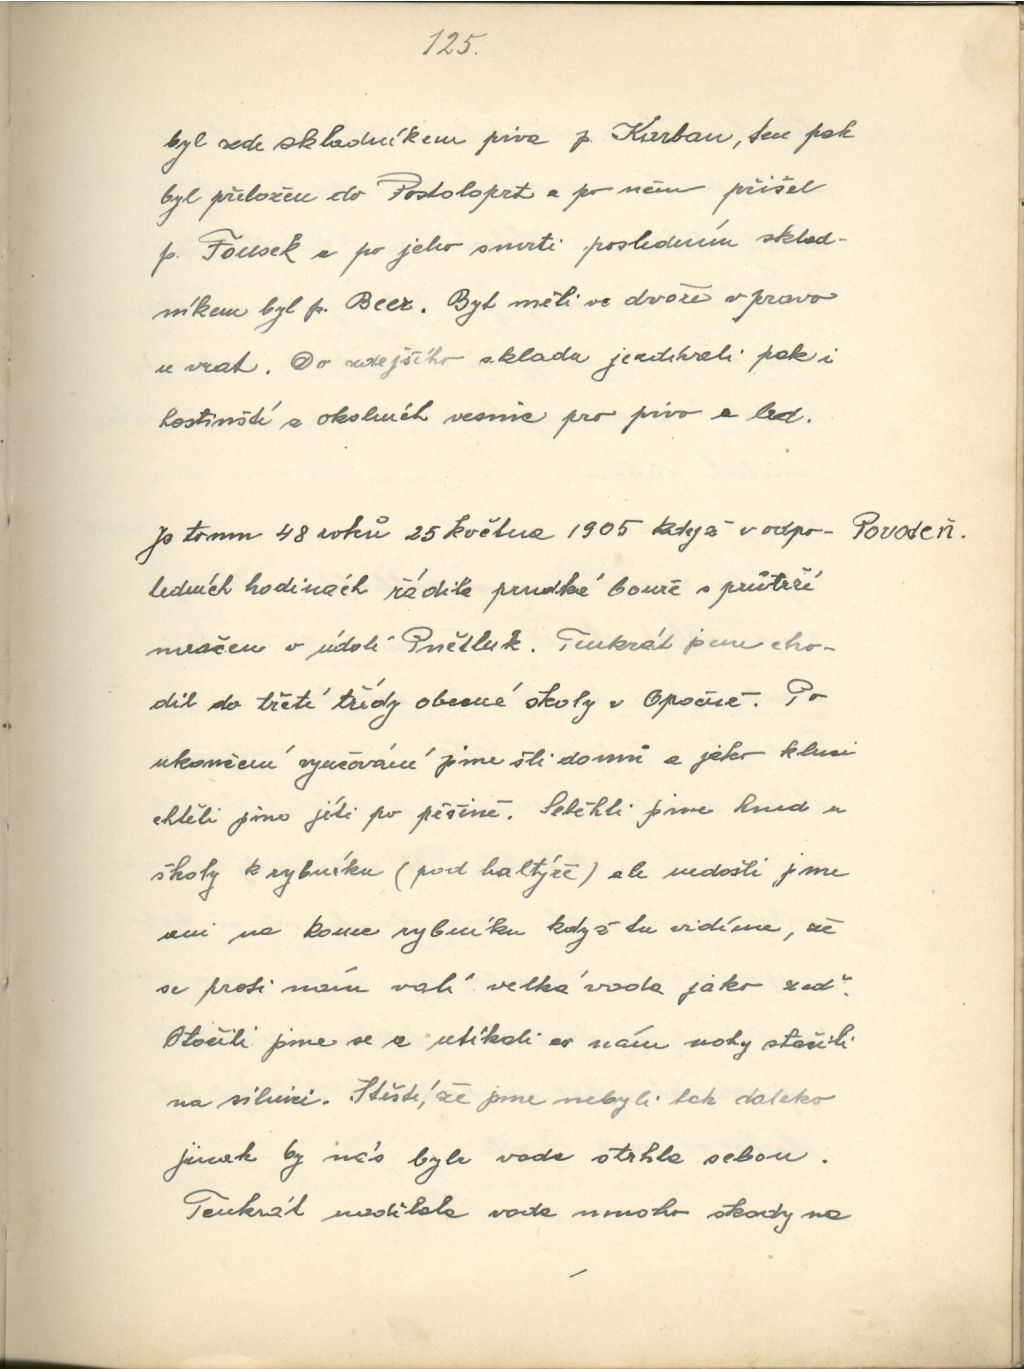 125.
byl zde skladníkem piva p. Karban, ten pak
byl přeložen do Postoloprt a po něm přišel
p. Fousek a po jeho smrti posledním sklad-
níkem byl p. Beer. Byt měli ve dvoře v pravo
u vrat. Do zdejšího skladu jezdívali pak i
hostinští z okolních vesnic pro pivo a led.
Je tomu 48 roků 25 května 1905 když v odpo-
Povodeň.
ledních hodinách řádila prudká bouře s průtrží
mračen v údolí Pnětluk. Tenkrát jsem cho-
dil do třetí třídy obecné školy v Opočně. Po
ukončení vyučování jsme šli domů a jako kluci
chtěli jsme jíti po pěšině. Seběhli jsme hned u
školy k rybníku (pod haltýře) ale nedošli jsme
ani na konec rybníku když tu vidíme, že
se proti nám valí velká voda jako zeď.
Otočili jsme se a utíkali co nám nohy stačili
na silnici. Štěstí, že jsme nebyli tak daleko
jinak by nás byla voda strhla sebou.
Tenkrát nadělala voda mnoho škody na